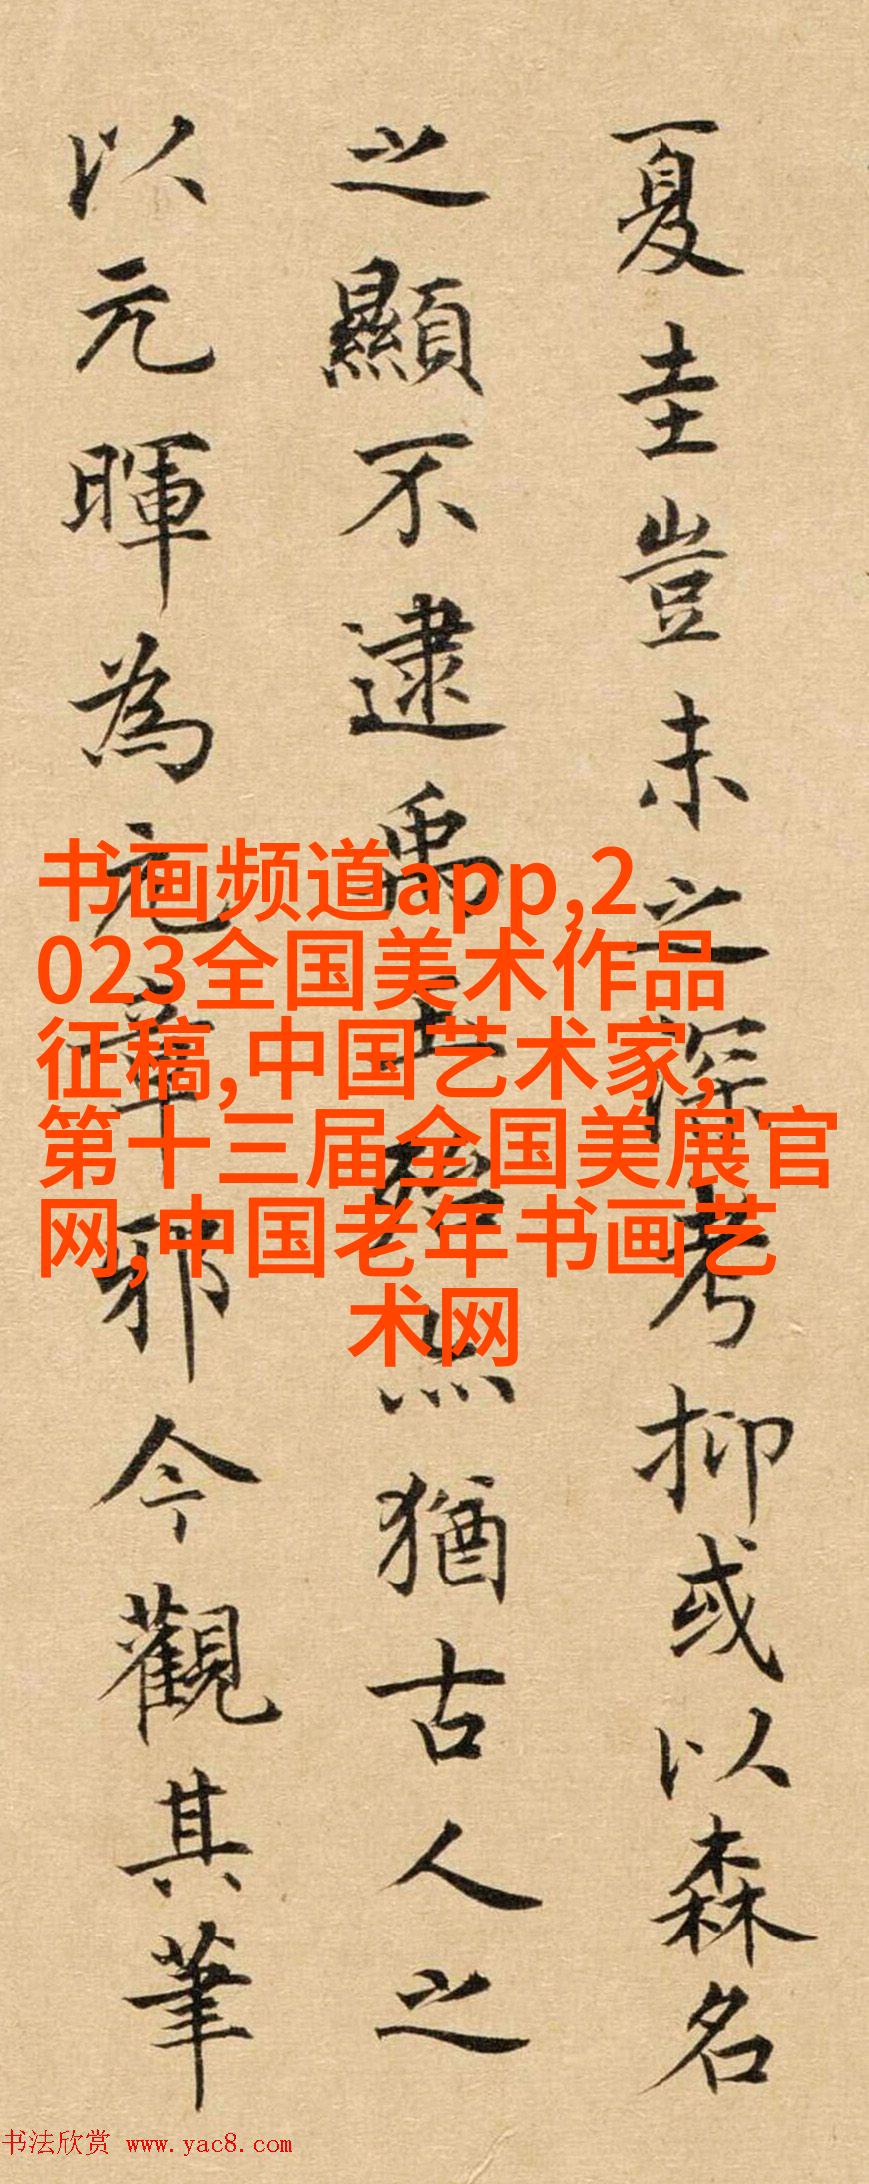 夏圭豈未之深考抑或以森名
之顯不逮禹玉殆亦猶古人之
以元暉為元章邪今觀其筆
书画频道app,2
023全国美术作品
征稿,中国艺术家,
第十三届全国美展官
网,中国老年书画艺
术网
书法欣赏 www.yac8.com